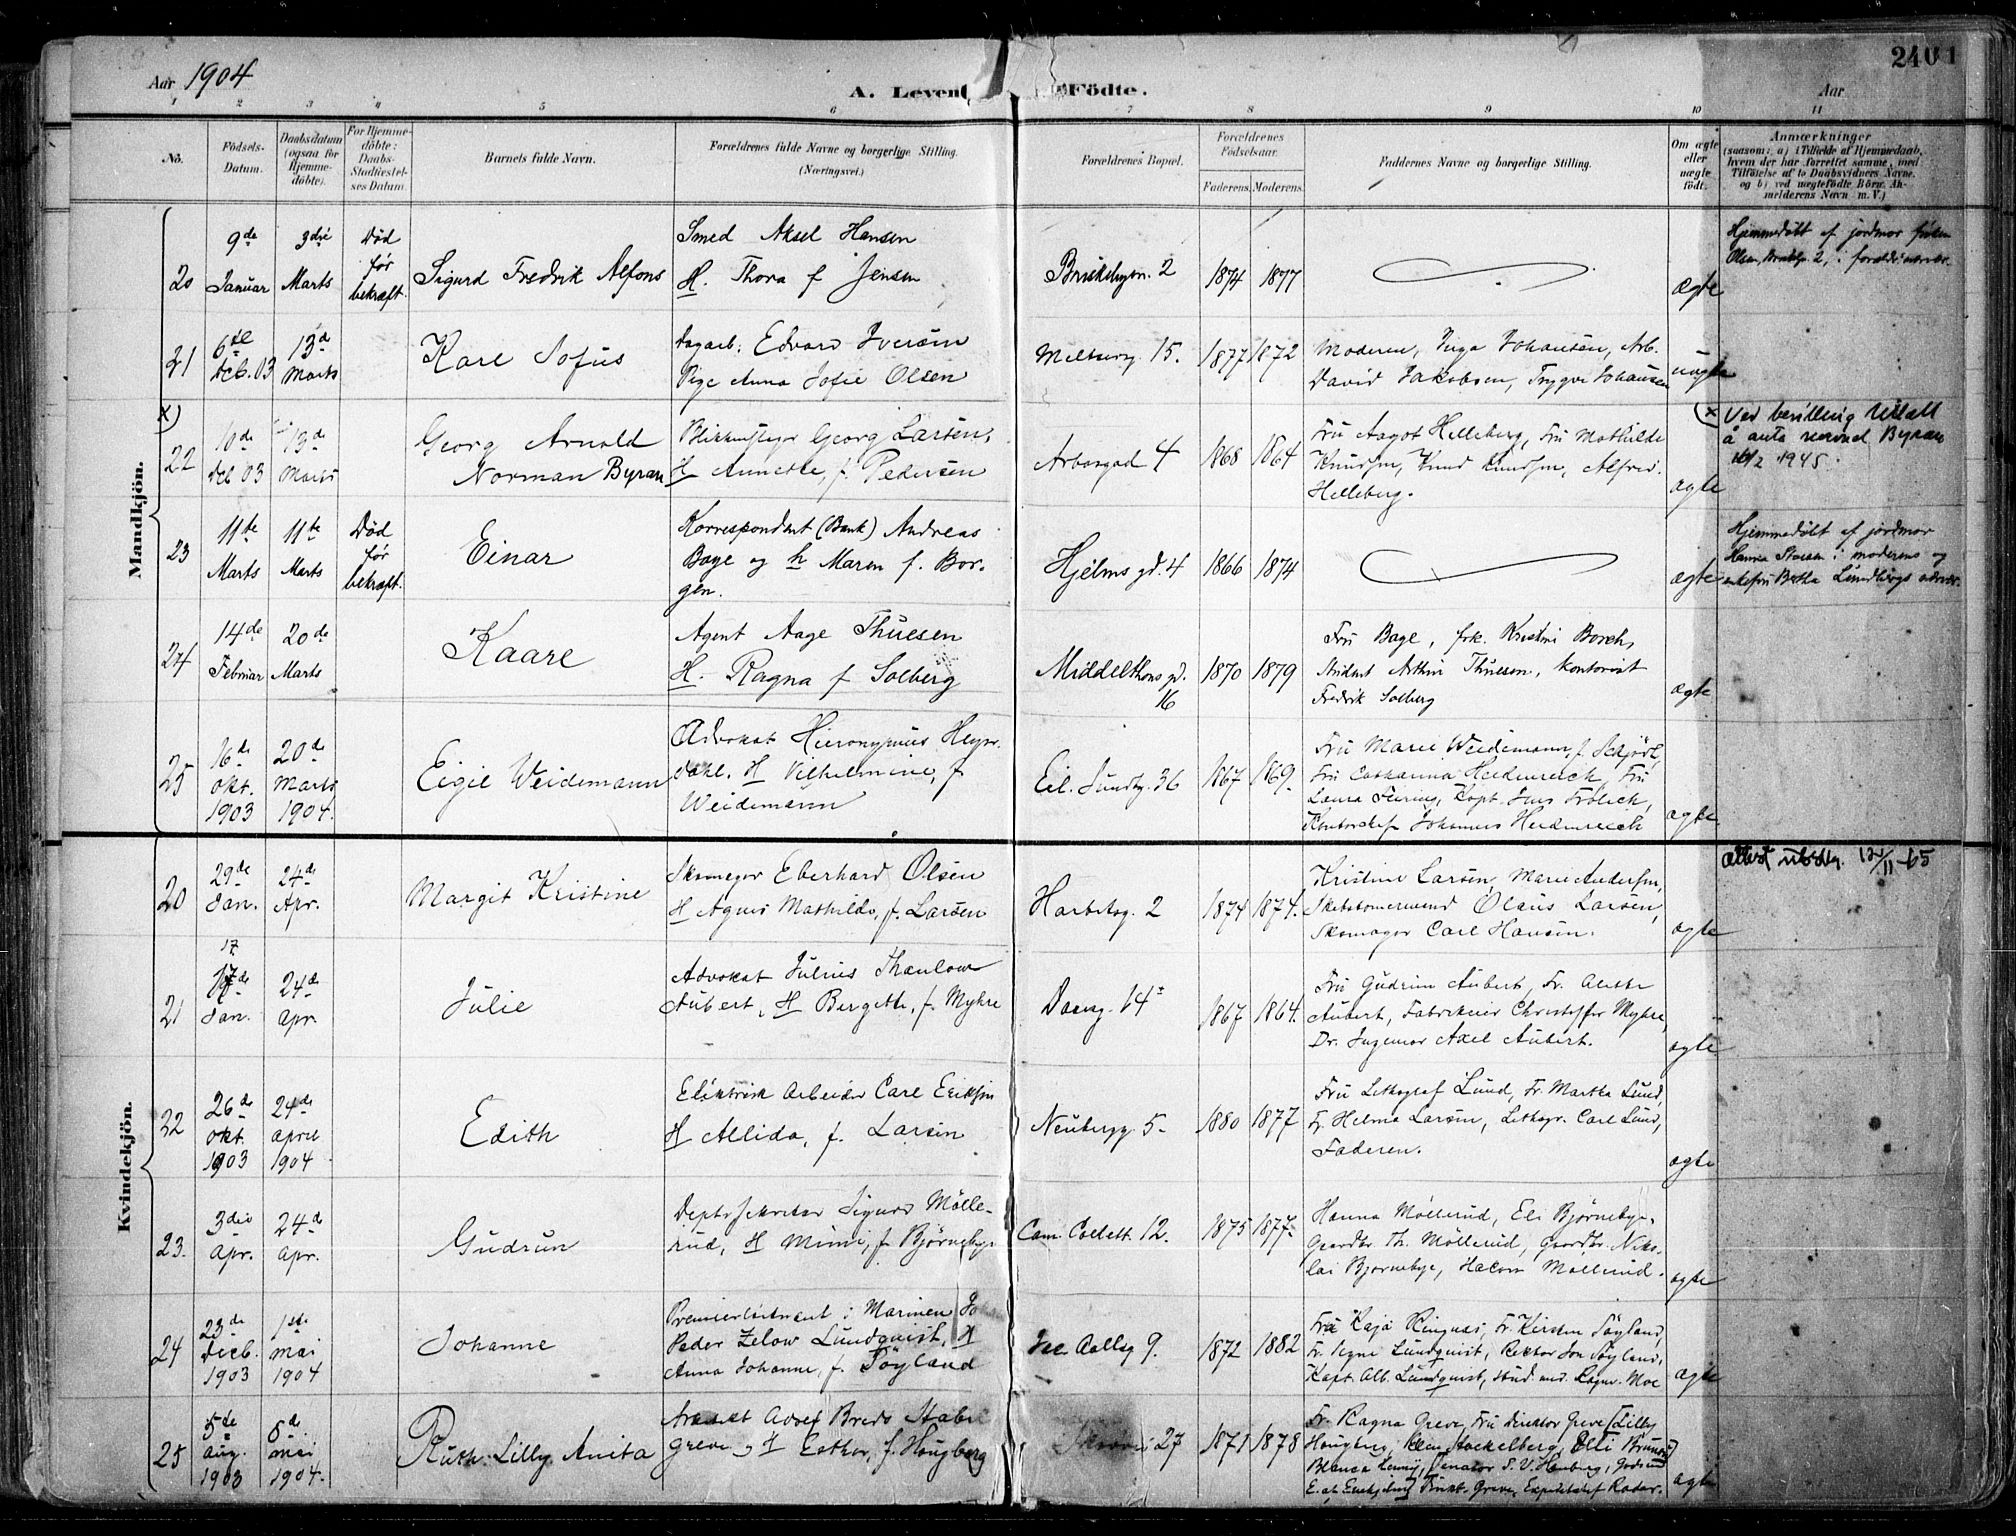 Aar 1904
A. Levend Födte.
240
1
Aar
1 2 3 4 5 6 7 8 9 10 11
No.
Födsels-
Datum.
Daabsdatum
(ogsaa for
Hjemme-
döbte).
For Hjemme-
döbte:
Daabs-
Stadfæstel-
ses Datum.
Barnets fulde Navn.
Forældrenes fulde Navne og borgerlige Stilling.
(Næringsvei.)
Forældrenes Bopæl.
Forældrenes
Födselsaar.
Faderens. Moderens.
Faddernes Navne og borgerlige Stilling.
Om ægte
eller
uægte
födt.
Anmærkninger
(saasom: a) i Tilfælde af Hjemmedaab,
hvem der har forrettet samme, med
Tilföielse af to Daabsvidners Navne.
og b) ved uægtefödte Börn, An-
melderens Navn m. V.)
Mandkjön.
20
9de
Januar
3die
Marts
Död
før
bekræft.
Sigurd Fredrik Alfons
Smed Aksel Hansen
H. Thora f Jensen
Briskebyvn. 2
1874 1877
ægte
Hjemmedöbt af jordmor frøken
Olsen
21
6te
Dcb. 03
13d
Marts
Karl Sofus
Dagarb. Edvard Iversen
Pige Anna Sofie Olsen
Meltzersg. 15.
1877 1872
Moderen, Inga Johansen, Arb.
David Jakobsen, Trygve Johansen
uægte
x)
22
10de
Dcb 03
13de
Marts
Georg Arnold
Norman Byran
Blikkenslager Georg Larsen,
H Annette, f. Pedersen
Arbosgad 4
1868 1864
Fru Aagot Helleberg, Fru Mathilde
Knudsen, Knud Knudsen, Alfred
Helleberg.
ægte
(x Ved bevilling tillatt
å anta navnet Byran
1945.
23
11te
Marts
11te
Marts
Död
før
bekræft.
Einar
Korrespondent (Bank) Andreas
Bage og h Maren f. Bor-
gen.
Hjelms gd. 4
1866 1874
ægte
Hjemmedöbt af jordmor
Hanna i moderens og
enkefru Bertha Lundbergs
24
14de
Februar
20de
Marts
Kaare
Agent Aage Thuesen
H. Ragna f Solberg
Middelthons gd.
16
1870 1879
Fru Bage, frk. Kristine Borch,
Student Arthur Thuesen, kontorist
Fredrik Solberg
ægte
25
16de
Okt.
1903
20de
Marts
1904.
Eigil Weidemann
Advokat Hieronymus Heyer-
dahl. H Vilhelmine, f
Weidemann
Eil. Sundtsg. 36
1867 1869.
Fru Marie Weidemann f. Schjöth,
Fru Catharina Heidenreich, Fru
Laura Kapt. Jens Frölich,
Kontorchef Johannes Heidenreich
ægte.
Kvindekjön.
20
29de
Jan.
24de
Apr.
Margit Kristine
Skomager Eberhard Olsen
H Agnes Mathilde, f. Larsen
Harbitzg. 2
1874 1874.
Kristine Larsen, Marie Andersen,
Olaus Larsen,
Skomager Carl Hansen.
ægte
attest utstedt. 12/11-65
21
17
17de
Jan.
24de
Apr.
Julie
Advokat Julius Thaulow
Aubert, H Bergette, f. Myhre
Daasg. 14
1867 1864.
Fru Gudrun Aubert, Fr. Alette
Aubert, Fabrikeier Christoffer Myhre,
Dr. Ingemar Axel Aubert.
ægte
22
26de
Okt.
1903
24de
april
1904
Edith
Elektrisk Arbeider Carl Eriksen
H Allida, f. Larsen
Neubergg. 5
1880 1877
Fru Lithograf Lund, Fr. Martha Lund,
Fr. Helma Larsen, Lithogr. Carl Lund,
Faderen.
ægte
23.
3die
Apr.
24de
Apr.
Gudrun
Sigurd Mölle-
rud, H Mimi, f. Bjørneby
Cam. Collett. 12.
1875 1877
Hanna Møllerud, Eli Bjørneby,
Gaardbr. Th. Møllerud, Gaardbr. Niko-
lai Bjørnebye, Hakon Møllerud.
ægte
24
23de
Decb.
1903
1ste
mai
1904
Johanne
Premierleitnant i Marinen
Peder Zelow Lundquist, H
Anna Johanne, f. Søyland
Jac. Aallsg 9.
1872 1882
Fru Kaja Ringnæs, Fr. Kirsten Søyland,
Fr. Signe Lundquist, Rektor Jon Søyland,
Kapt. Alb. Lundquist, stud. med. Ragnv. Moe
ægte
25
5te
Aug.
1903
8de
mai
1904.
Ruth Lilly Anita
Arkitekt Adolf Bredo Stabel
Greve, H Esther, f. Hougberg
27
1871 1878
Fr. Ragna Greve, Fru Direktör Greve, Lilly
Hougberg, Stackelberg, Elli
Blanca Senator
Greve, Roder.
ægte